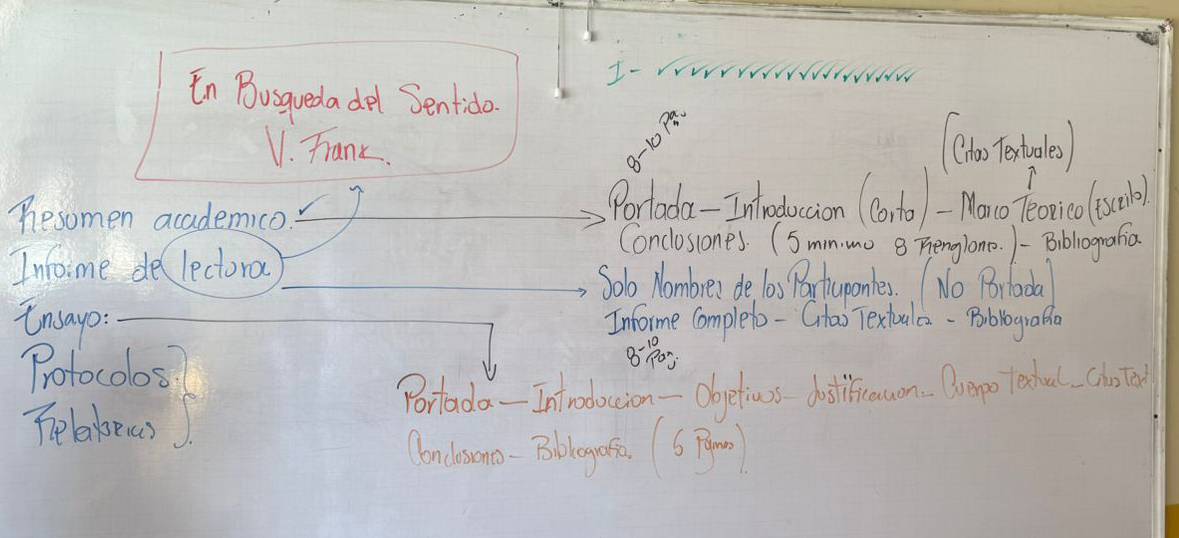 En Busqueda del Sentido.
V. Frank.
I-
8-10 Pag.
(Citas Textuales)
Resumen academico. ✓
Portada - Introduccion (Corta) - Marco Teorico (Escrito).
Conclosiones. (5 minimo 8 Renglons.) - Bibliografia
Informe de lectura
Solo Nombres de los Participantes. (No Portada)
Informe Completo - Citas Textuales - Bibliografia
8-10 Pag.
Ensayo:
Portada - Introduccion - Objetivos - Justificacion - Cuerpo Textual - Citas Text
Conclosiones - Bibliografia. (5 Pginas)
Protocolos
Relatorias